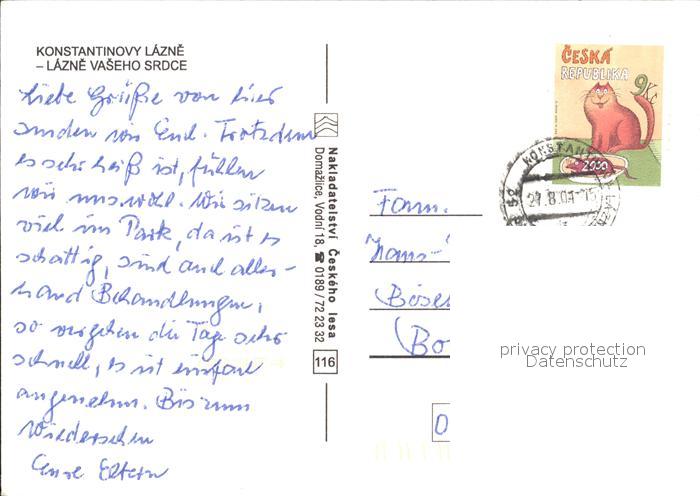 KONSTANTINOVY LÁZNĚ
– LÁZNĚ VAŠEHO SRDCE
Liebe Grüße von hier
senden wir Euch. Trotzdem
es sehr heiß ist, fühlen
wir uns wohl. Wir sitzen
viel im Park, da ist es
schattig, sind auch aller-
hand Behandlungen,
so vergehen die Tage sehr
schnell, es ist einfach
angenehm. Bis zum
Wiedersehen
Eure Eltern
Nakladatelství Českého lesa
Domažlice, Vodní 18, ☎ 0189 / 72 23 32
116
ČESKÁ
REPUBLIKA
9Kč
2000
KONSTANT
27.8.01-15
Fam.
Hans-
Böse
Bo
D
privacy protection
Datenschutz